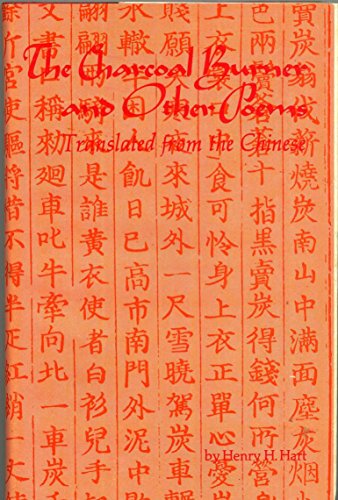 The Charcoal Burner
and Other Poems
Translated from the Chinese
賣炭翁伐薪燒炭南山中滿面塵灰烟
色兩鬢蒼蒼十指黑賣炭得錢何所營
上衣裳口中食可憐身上衣正單心憂
賤願天寒夜來城外一尺雪曉駕炭
冰轍牛困人飢日已高市南門外泥中
翩兩騎來是誰黃衣使者白衫兒手
文書口稱勑迴車叱牛牽向北一車炭
斤宮使驅將惜不得半疋紅綃一丈
by Henry H. Hart